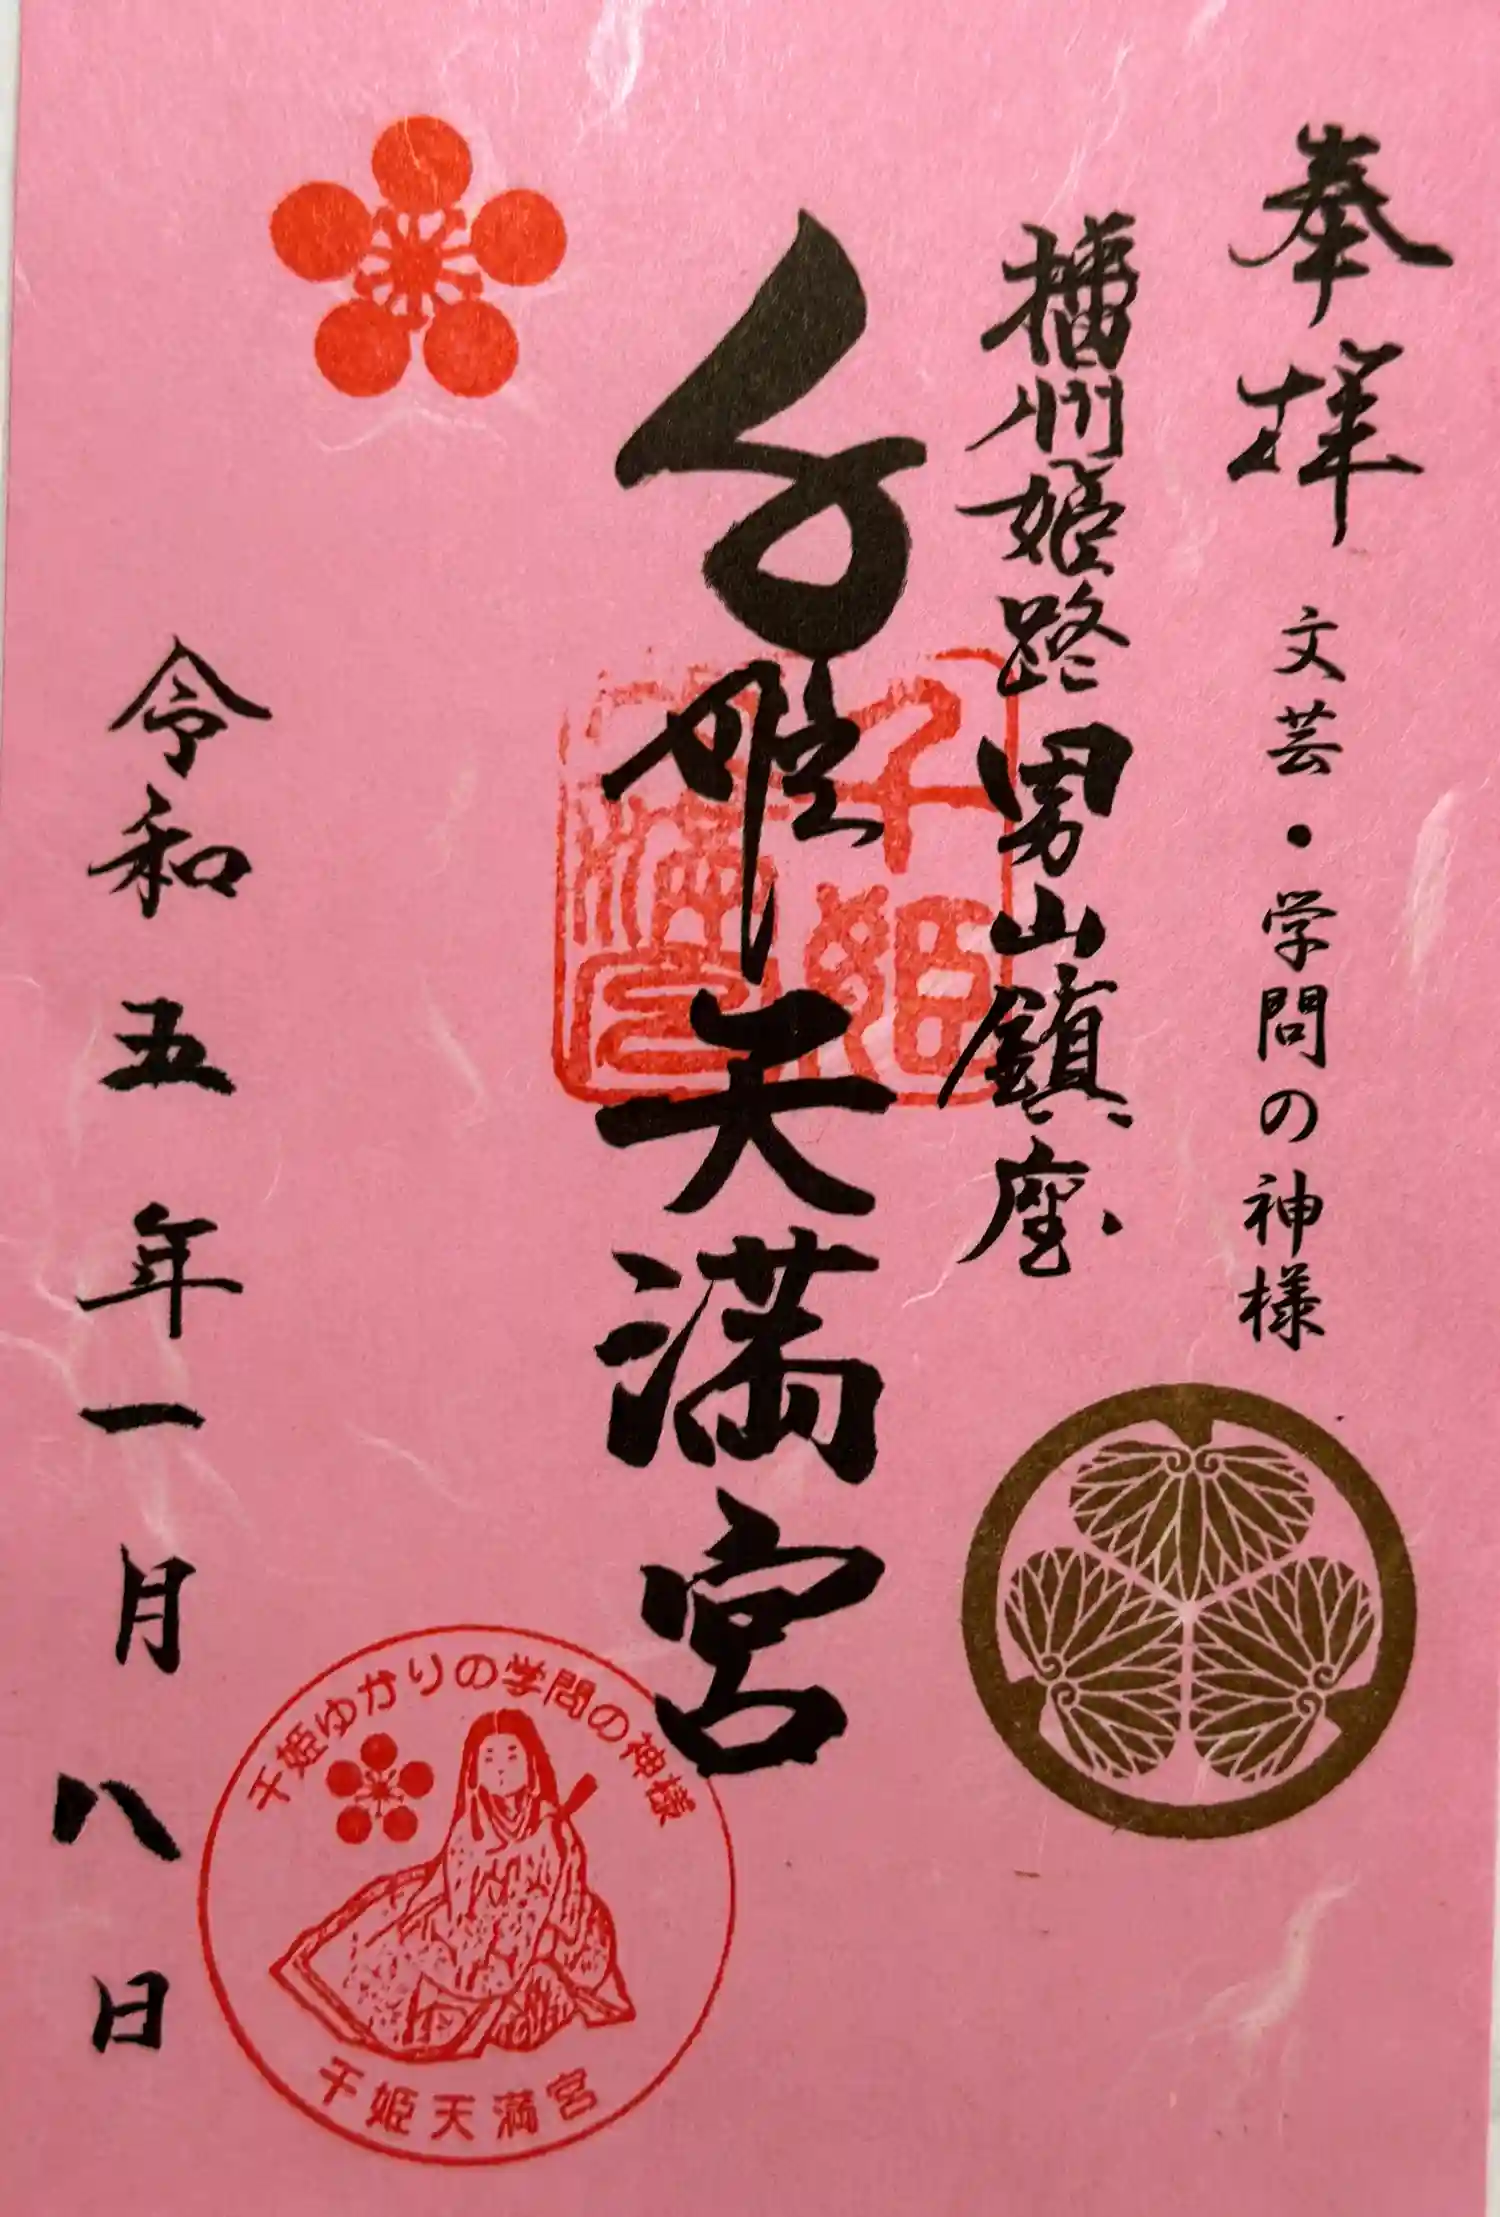 奉拝
文芸・学問の神様
播州姫路男山鎮座
千姫天満宮
千姫天満宮
令和五年一月八日
千姫ゆかりの学問の神様
千姫天満宮